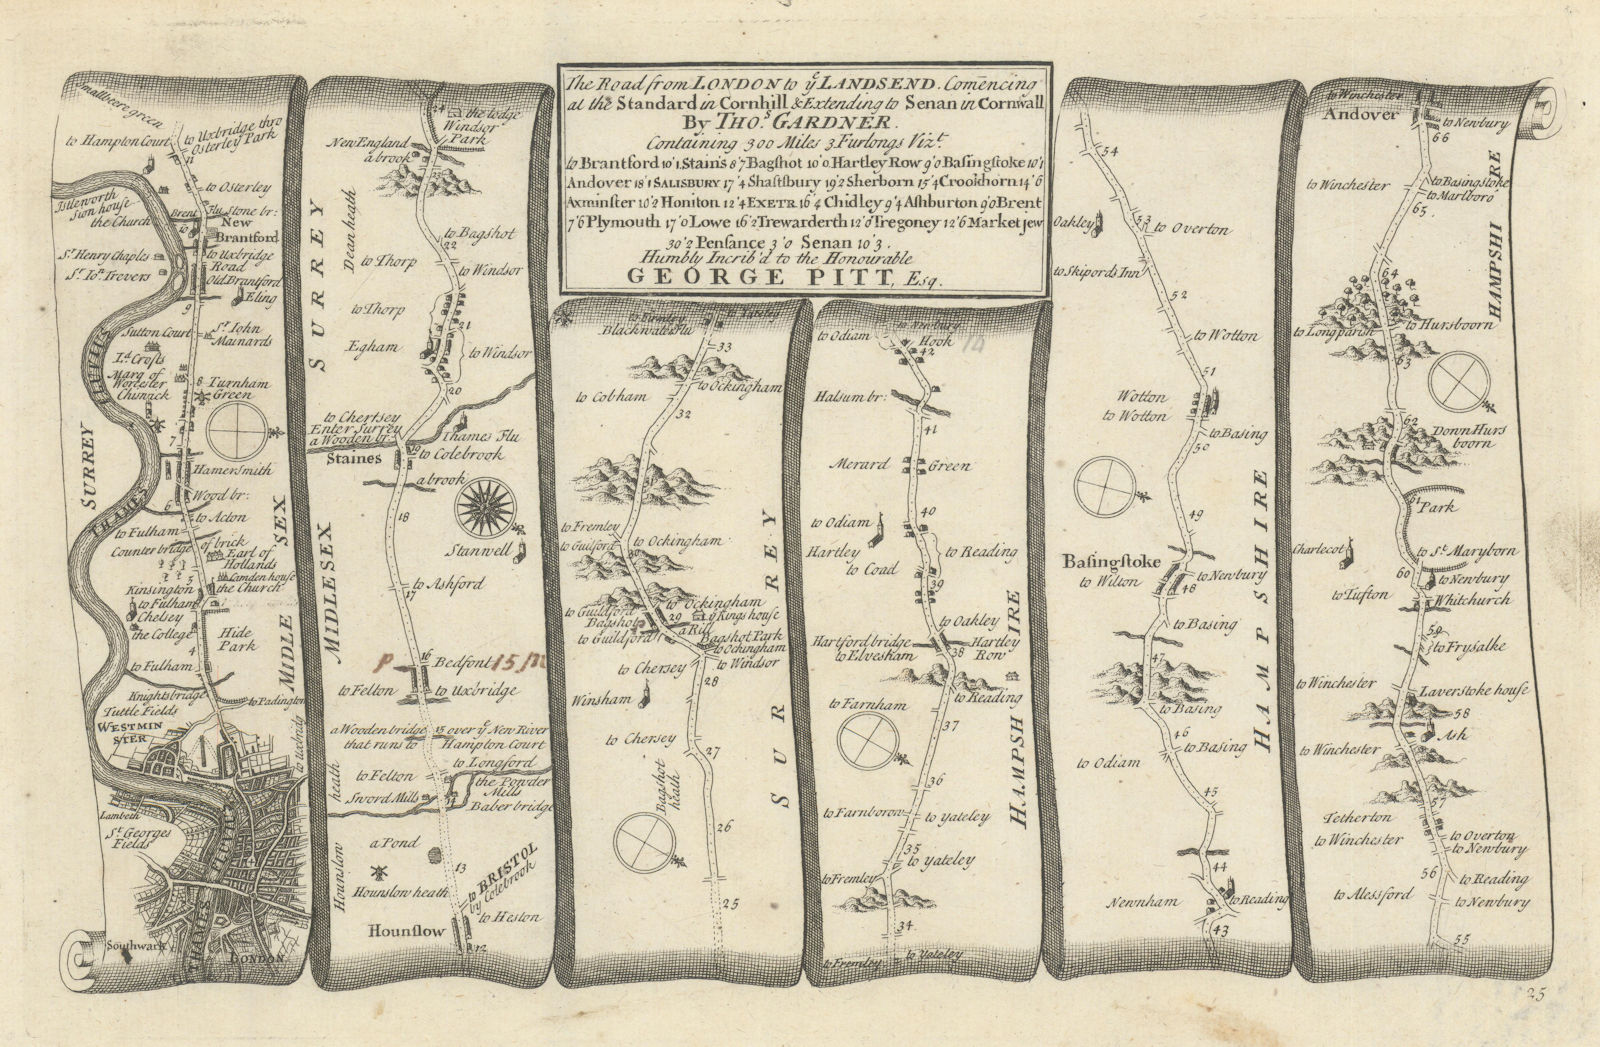 The Road from LONDON to yᵉ LANDSEND. Comencing
at the Standard in Cornhill & Extending to Senan in Cornwall
By THOˢ. GARDNER.
Containing 300 Miles 3 Furlongs Vizᵗ.
to Brantford 10'1, Stains 8'7 Bagshot 10'0, Hartley Row 9'0 Basingstoke 10'1
Andover 18'1 SALISBURY 17'4 Shaftsbury 19'2 Sherborn 15'4 Crookhorn 14'6
Axminster 10'2 Honiton 12'4 EXETR 16'4 Chidley 9'4 Ashburton 9'0 Brent
7'6 Plymouth 17'0 Lowe 16'2 Trewarderth 12'0 Tregoney 12'6 Market jew
30'2 Pensance 3'0 Senan 10'3.
Humbly Inscrib'd to the Honourable
GEORGE PITT, Esq.
Smallbeere green
to Hampton Court
to Uxbridge thro
Osterley Park
11
to Osterley
Istleworth
Sion house
the Church
Brent Flu
Stone br:
New
Brantford
10
Sʳ. Henry Chaples
to Uxbridge
Road
Sʳ. Joⁿ. Trevors
Old Brantford
Eling
9
Sutton Court
Sʳ. John
Mainards
Lᵈ. Crofts
Marq of
Worcester
Chiswick
8
Turnham
Green
FLUVIUS
7
SURREY
Hamersmith
THAMES
Wood br:
6
to Acton
to Fulham
Counter bridge
of brick
Earl of
Hollands
5
Camden house
Kinsington
the Church
to Fulham
Chelsey
the College
Hide
Park
4
MIDLE SEX
to Fulham
Knightsbridge
to Padington
Tuttle Fields
WESTMIN
STER
to Uxbridg
Lambeth
Sᵗ. Georges
Fields
FLUVIUS
THAMES
Southwark
LONDON
24
the lodge
Windsor
Park
New England
a brook
23
SURREY
Dean heath
to Bagshot
22
to Thorp
to Windsor
to Thorp
21
Egham
to Windsor
20
to Chertsey
Enter Surrey
a Wooden br:
Thames Flu
Staines
19
to Colebrook
a brook
18
Stanwell
MIDLESEX
to Ashford
17
16
P
Bedfont
15
to Felton
to Uxbridge
a Wooden bridge
15 over yᵉ New River
that runs to
Hampton Court
to Longford
to Felton
the Powder
Mills
Sword Mills
14
Baber bridge
heath
Hounslow
a Pond
13
Hounslow heath
to BRISTOL
by Colebrook
to Heston
Hounslow
12
to Fremley
to Yateley
Blackwater Flu
33
to Cobham
to Ockingham
32
to Fremley
to Guilford
to Ockingham
30
to Guildford
Bagshot
to Guildford
to Ockingham
29
yᵉ Kings house
a Rill
Bagshot Park
to Ockingham
to Windsor
to Chersey
28
Winsham
to Chersey
27
Bagshot
heath
SURREY
26
25
to Odiam
to Newbury
Hook
42
Halsum br:
41
Merard
Green
40
to Odiam
Hartley
to Reading
to Coad
39
to Oakley
Hartford bridge
to Elvesham
Hartley
Row
38
to Reading
to Farnham
37
HAMPSHIRE
36
to Farnborow
to Yateley
35
to Yateley
to Fremley
34
to Fremley
to Yateley
54
Oakley
53
to Overton
to Skipords Inn
52
to Wotton
51
Wotton
to Wotton
to Basing
50
49
Basingstoke
to Wilton
to Newbury
48
to Basing
47
HAMPSHIRE
to Basing
46
to Basing
to Odiam
45
44
Newnham
to Reading
43
to Winchester
Andover
to Newbury
66
to Winchester
to Basingstoke
to Marlboro
65
HAMPSHIRE
64
to Longparish
to Hursboorn
63
62
Down Hurs
boorn
61
Park
Charlecot
to Sᵗ. Maryborn
60
to Newbury
to Tufton
Whitchurch
59
to Frysalke
to Winchester
Laverstoke house
58
Ash
to Winchester
57
Tetherton
to Winchester
to Overton
to Newbury
56
to Reading
to Alessford
to Newbury
55
25